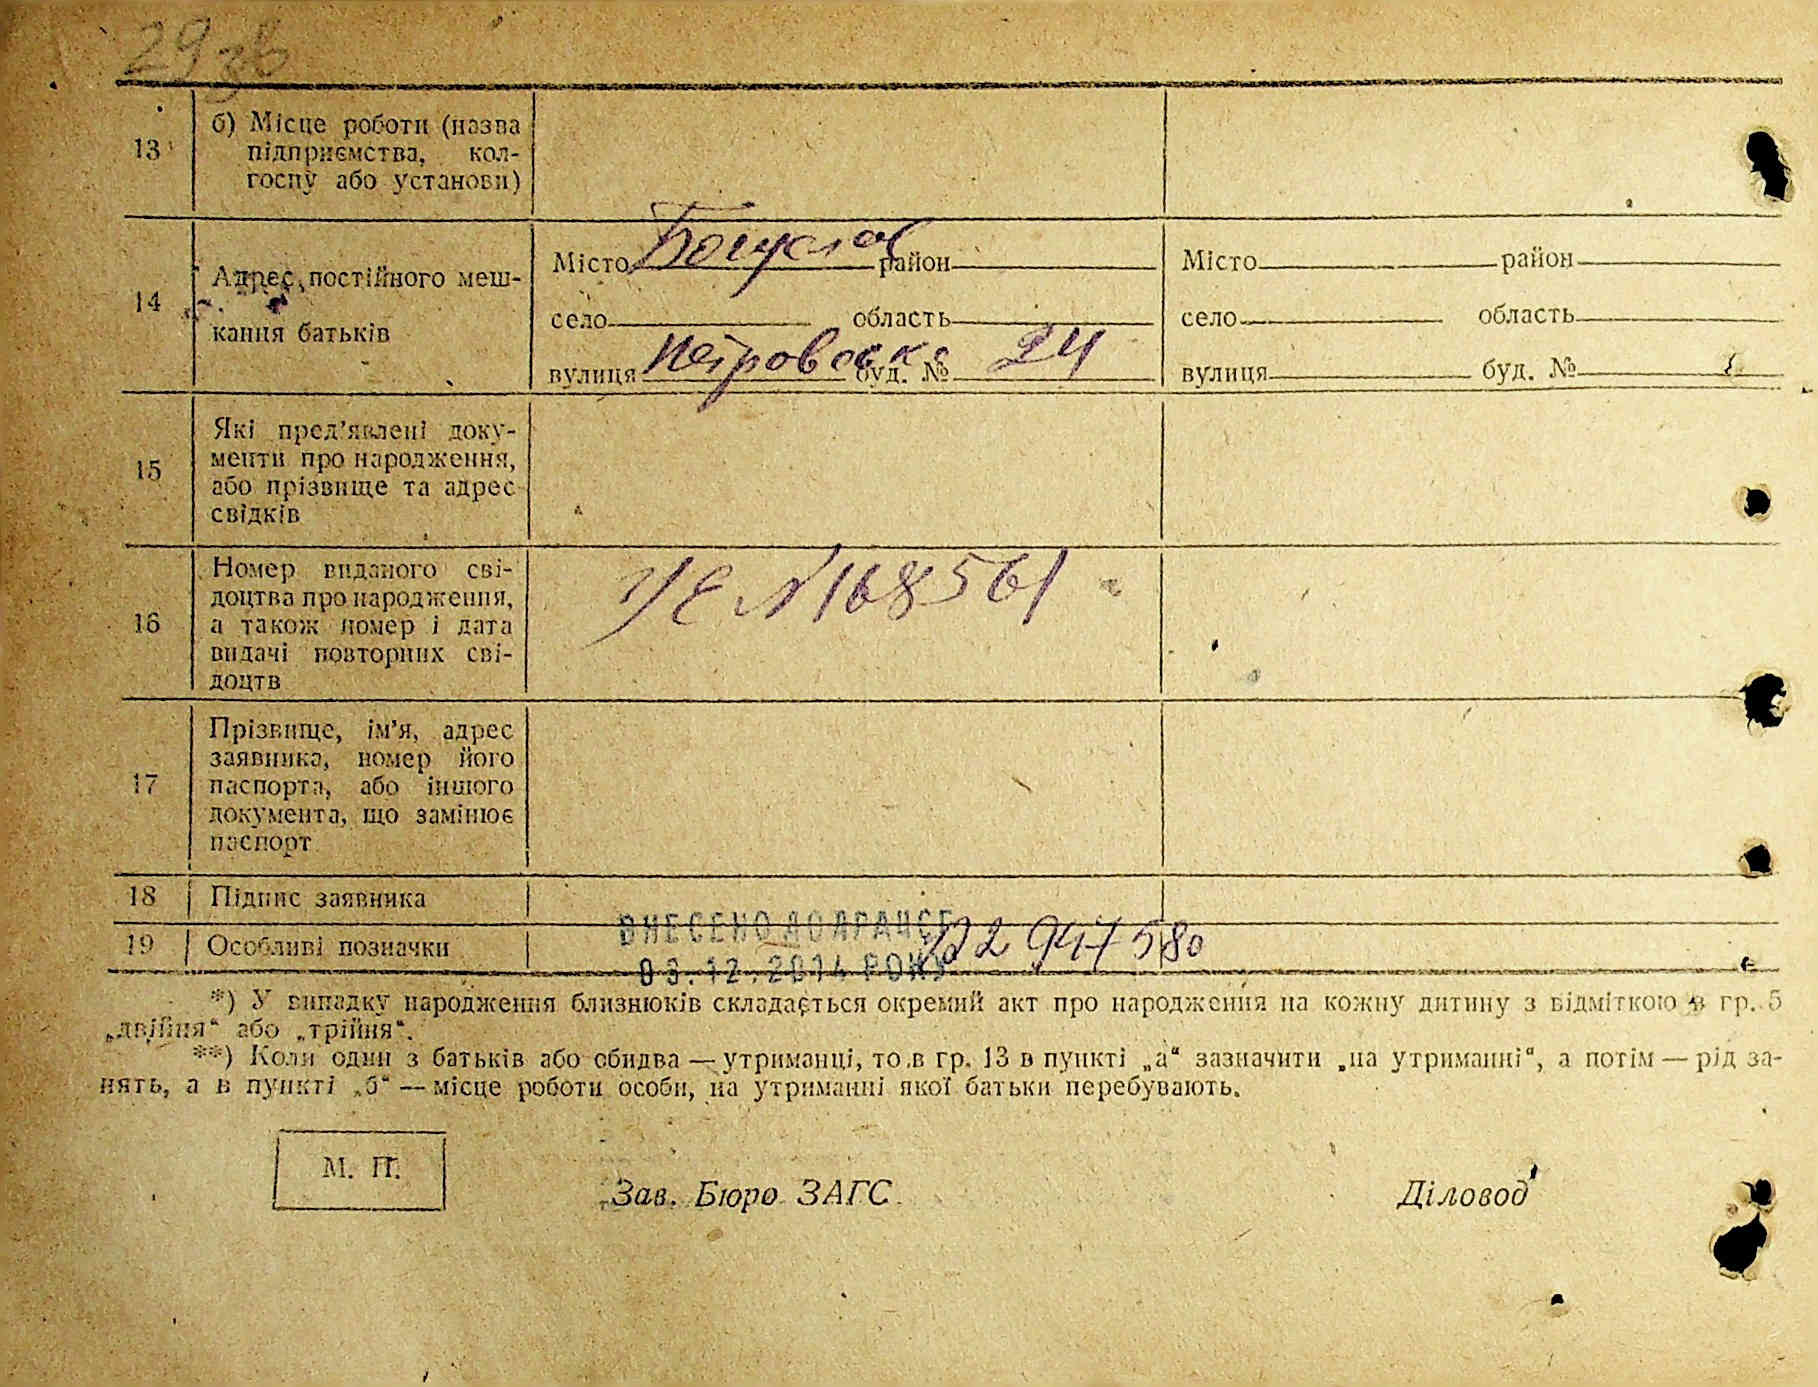 29 зв
13
б) Місце роботи (назва
підприємства, кол-
госпу або установи)
14
Адрес постійного меш-
кання батьків
Місто Богуслав район
село область
вулиця Петровська буд. № 24
Місто район
село область
вулиця буд. №
15
Які пред’явлені доку-
менти про народження,
або прізвище та адрес
свідків
16
Номер виданого сві-
доцтва про народження,
а також номер і дата
видачі повторних сві-
доцтв
№ 168561
17
Прізвище, ім’я, адрес
заявника, номер його
паспорта, або іншого
документа, що замінює
паспорт
18 Підпис заявника
19 Особливі позначки
ВНЕСЕНО ДО ДРАЦСГ
03.12.2014 РОКУ
*) У випадку народження близнюків складається окремий акт про народження на кожну дитину з відміткою в гр. 5
„двійня“ або „трійня“.
**) Коли один з батьків або обидва — утриманці, то в гр. 13 в пункті „а“ зазначити „на утриманні“, а потім — рід за-
нять, а в пункті „б“ — місце роботи особи, на утриманні якої батьки перебувають.
М. П.
Зав. Бюро ЗАГС
Діловод